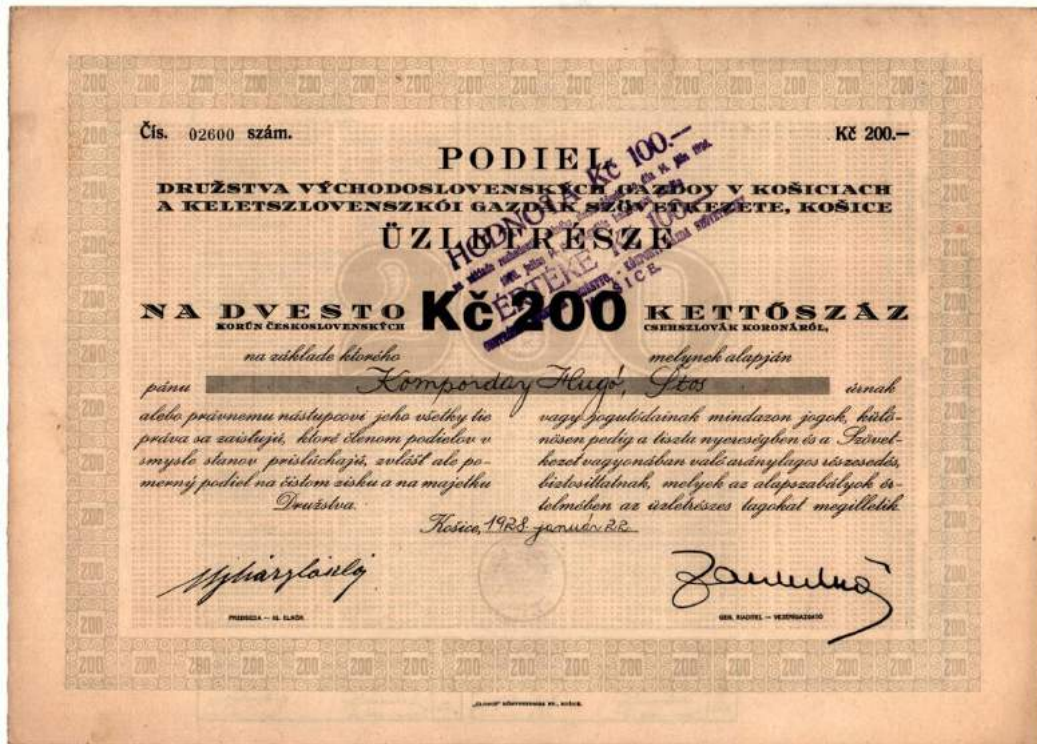 Čís. 02600 szám.
Kč 200.—
PODIEL
DRUŽSTVA VÝCHODOSLOVENSKÝCH GAZDOV V KOŠICIACH
A KELETSZLOVENSZKÓI GAZDÁK SZÖVETKEZETE, KOŠICE
ÜZLETRÉSZE
HODNOTA Kč 100.—
ÉRTÉKE Kč 100.—
KOŠICE.
NA DVESTO Kč 200 KETTŐSZÁZ
KORÚN ČESKOSLOVENSKÝCH
CSEHSZLOVÁK KORONÁRÓL,
na základe ktorého
melynek alapján
pánu Komporday Hugó, Štos úrnak
alebo právnemu nástupcovi jeho všetky tie
práva sa zaistujú, ktoré členom podielov v
smysle stanov prislúchajú, zvlášť ale po-
merný podiel na čistom zisku a na majetku
Družstva.
vagy jogutódainak mindazon jogok, külö-
nösen pedig a tiszta nyereségben és a Szövet-
kezet vagyonában való aránylagos részesedés,
biztosittatnak, melyek az alapszabályok ér-
telmében az üzletrészes tagokat megilletik.
Košice, 1928. január 22.
PREDSEDA — IG. ELNÖK
GEN. RIADITEL — VEZÉRIGAZGATÓ
200